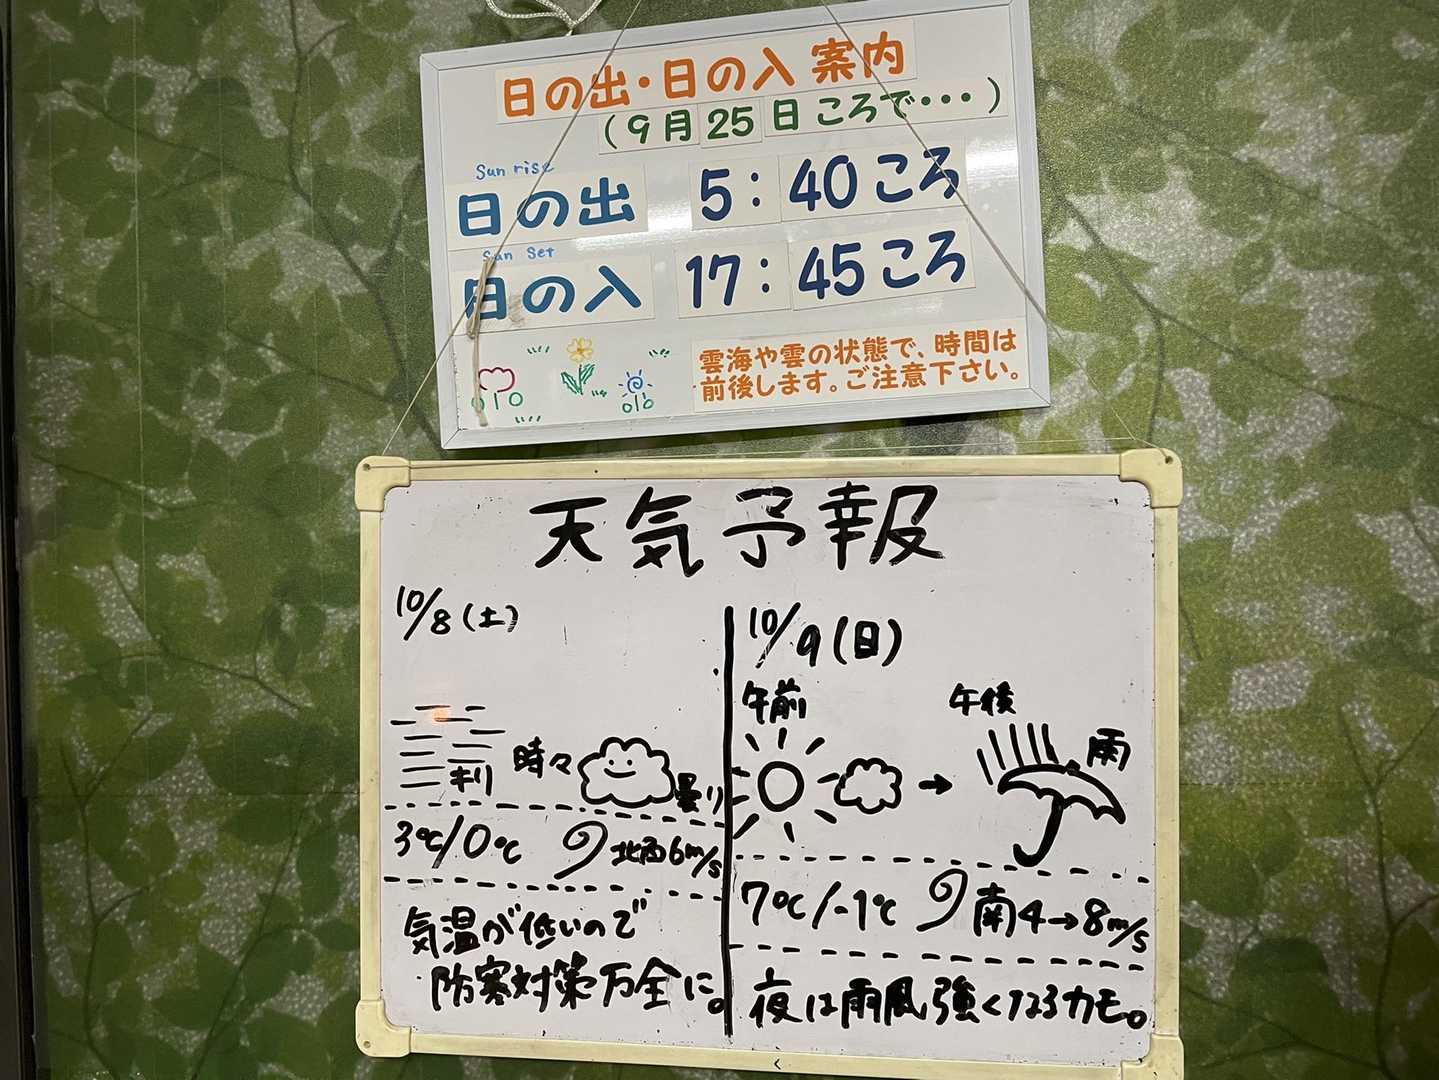 日の出・日の入 案内
(9月25日ころで・・・)
Sun rise
日の出 5:40ころ
Sun Set
日の入 17:45ころ
雲海や雲の状態で、時間は
前後します。ご注意下さい。
天気予報
10/8(土)
キリ 時々 曇り
3℃/0℃ 北西6m/s
気温が低いので
防寒対策万全に。
10/9(日)
午前 午後
→ 雨
7℃/-1℃ 南4→8m/s
夜は雨風強くなるカモ。